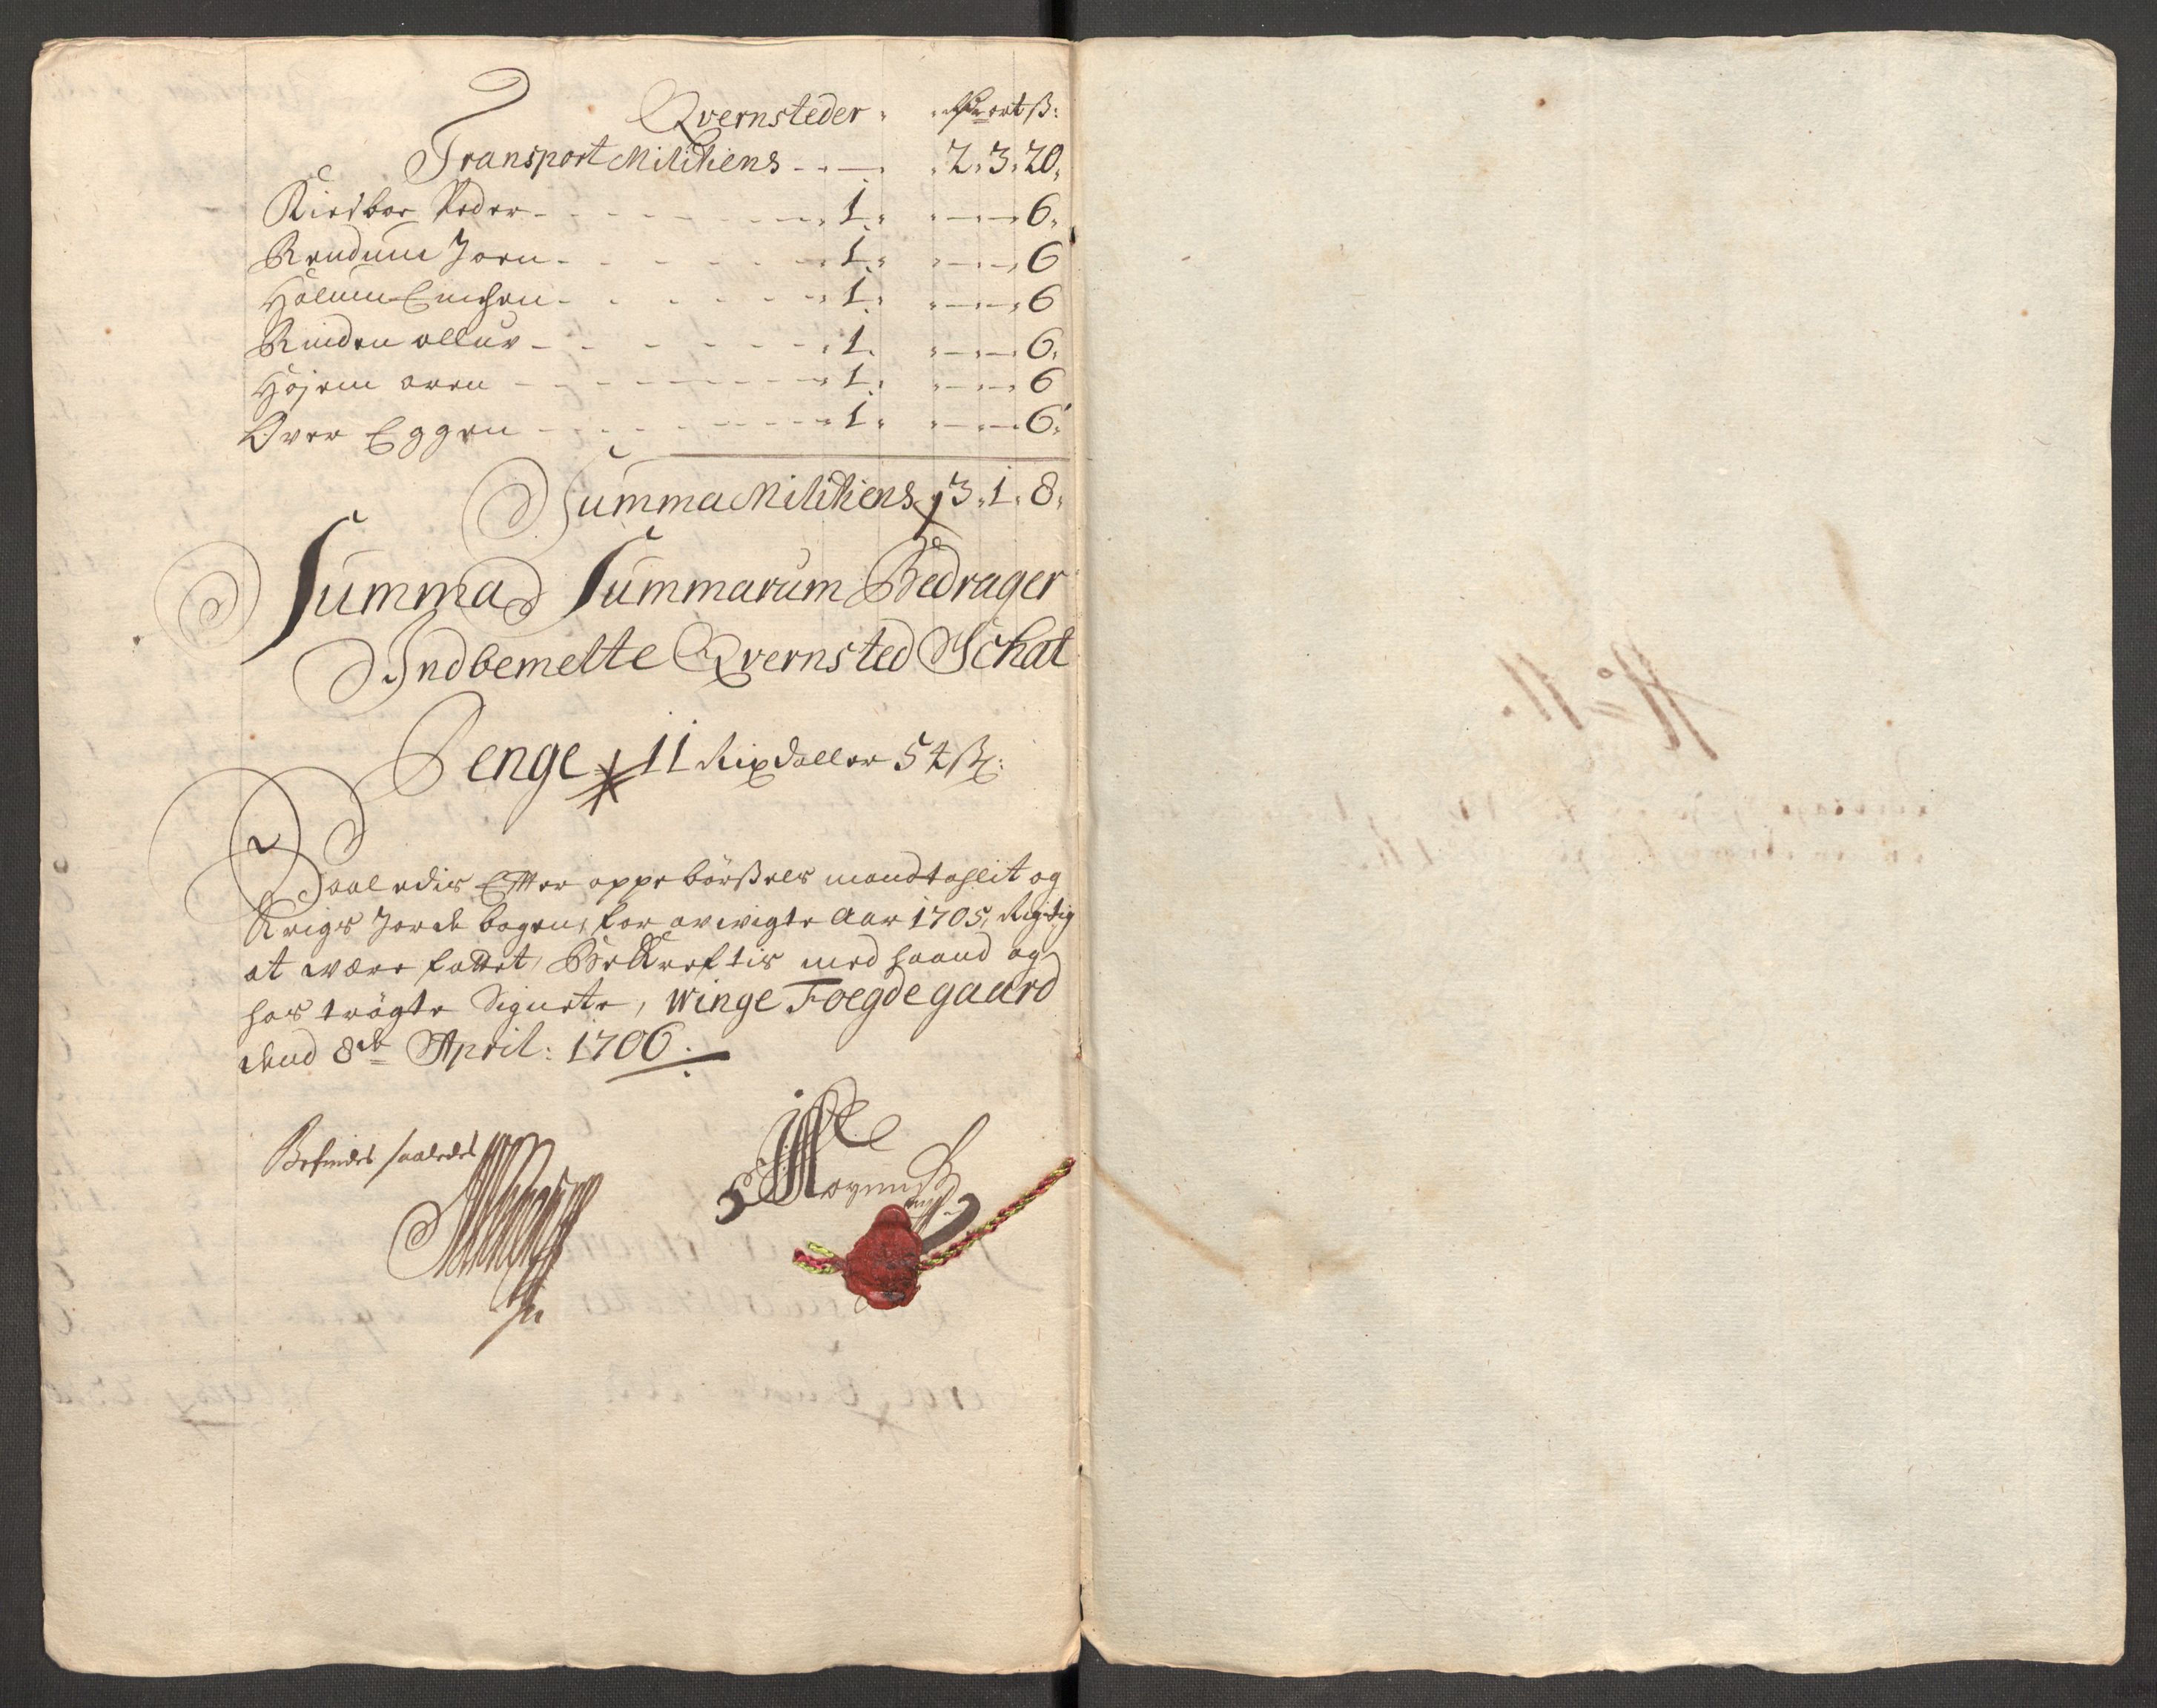 Qvernsteder. Rdr ort ß:
Transport Militiens - - 2. 3. 20.
Kiesboe Peder - 1. - - 6.
Rendum Joen - 1. - - 6
Holum Einchen - 1. - - 6
Rinden olluf - 1. - - 6.
Höjem oven - 1. - - 6
Over Eggen - 1. - - 6.
Summa Militiens 3. 1. 8.
Summa Summarum Bedrager
Indbemelte Qvernsted Schat
Penge 11 Rixdaller 54 ß:
Saaledis Efter oppebörßels mandtahlit og
Krigs Jorde bogen, for avvigte Aar 1705, Rigtig
at være fattet, BeKreftis med haand og
hos trögte Signete, Winge Foegdegaard
dend 8de April: 1706.
Befindes saaledes
No 11.